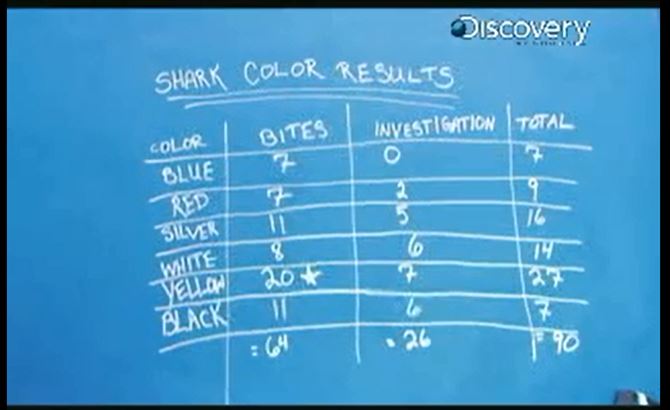 Discovery
SHARK COLOR RESULTS
COLOR BITES INVESTIGATION TOTAL
BLUE 7 0 7
RED 7 2 9
SILVER 11 5 16
WHITE 8 6 14
YELLOW 20 ★ 7 27
BLACK 11 6 7
= 64 = 26 = 90